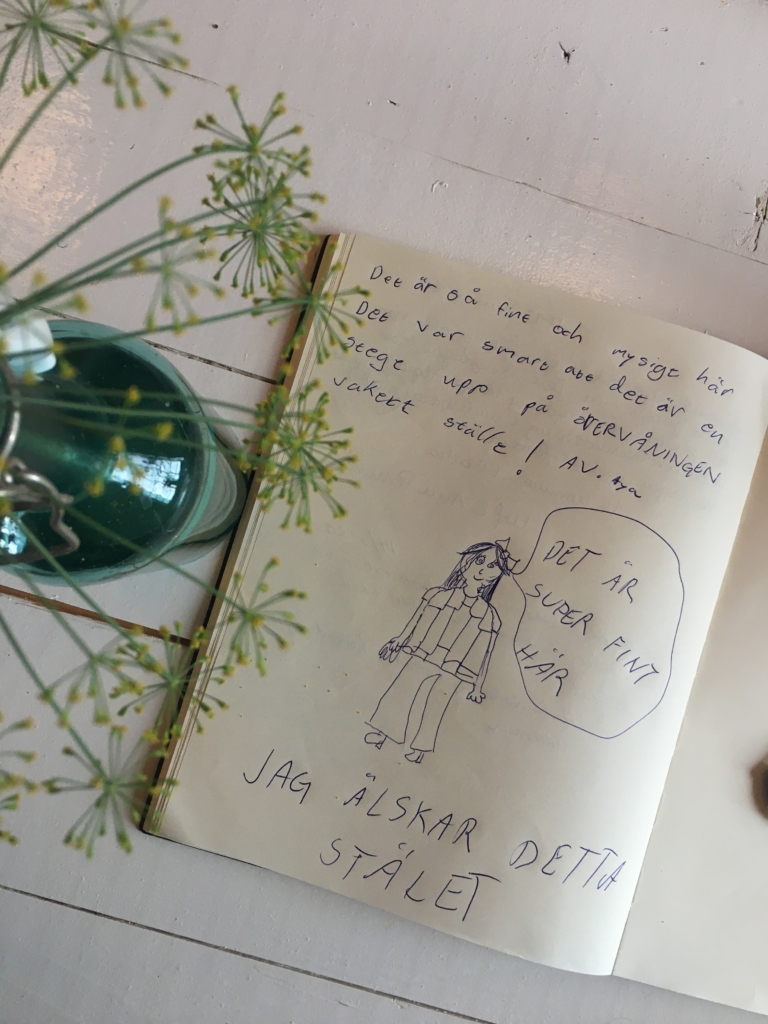 Det är så fint och mysigt här
Det var smart att det är en
stege upp på övervåNINGEN
vakert ställe! AV. tya
DET ÄR
SUPER FINT
HÄR
JAG ÄLSKAR DETTA
STÄLET